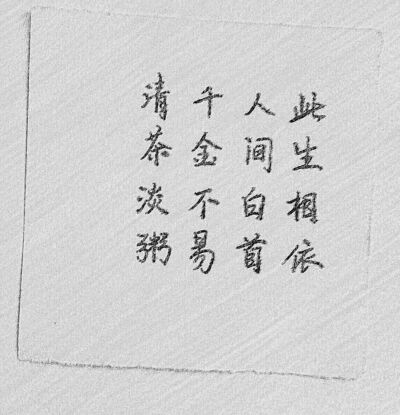 此生相依
人间白首
千金不易
清茶淡粥